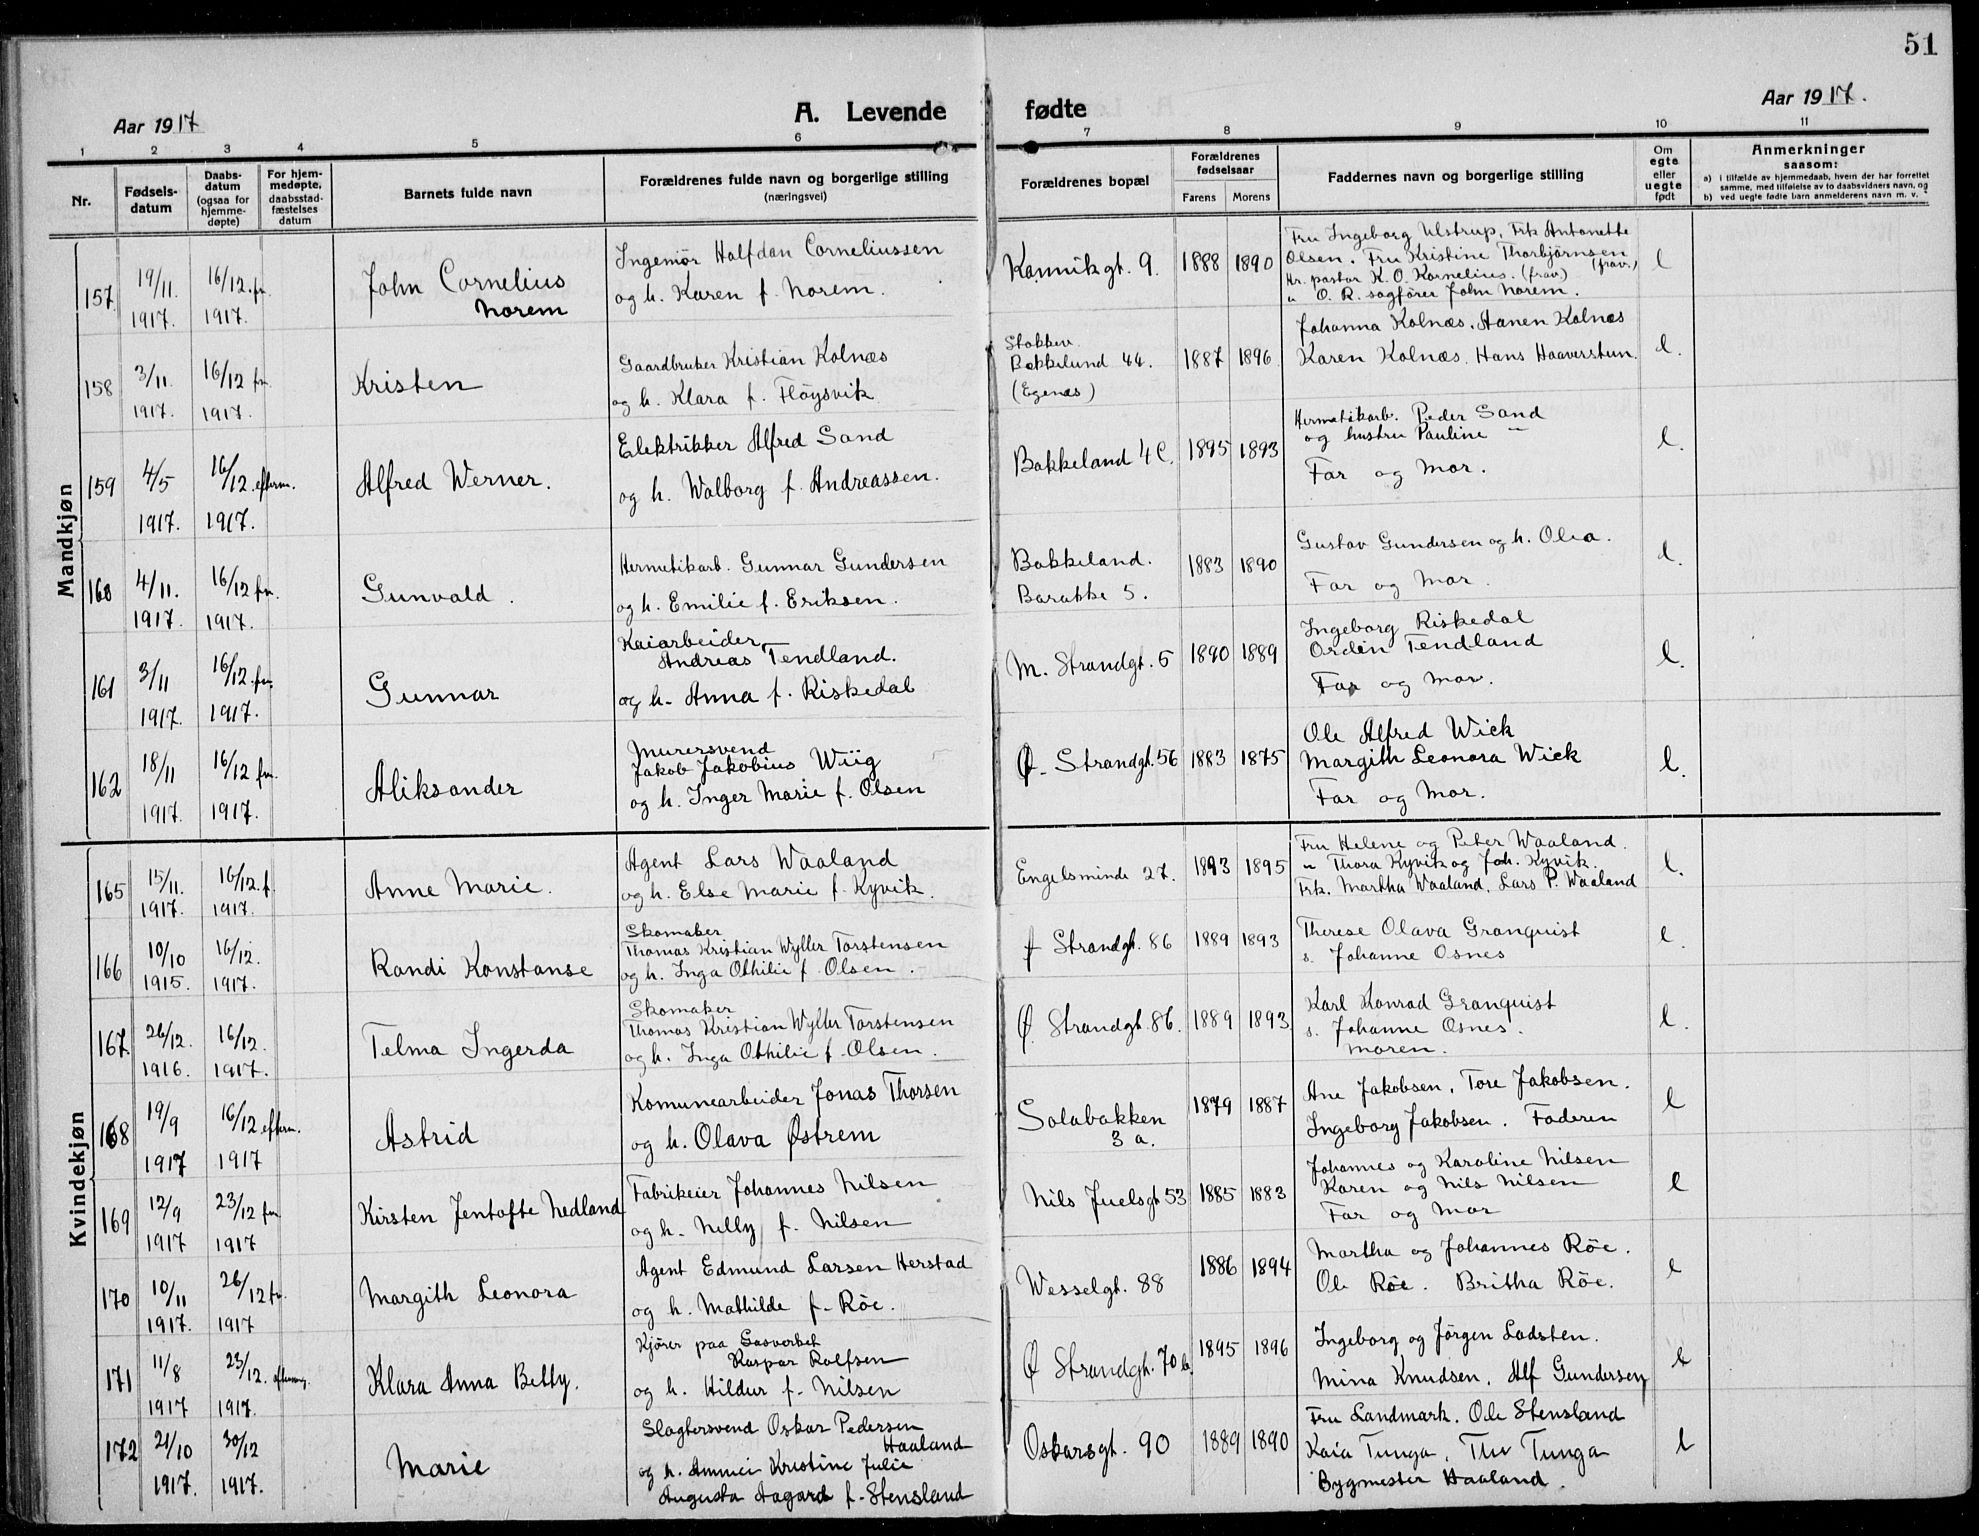 51
Aar 1917
A. Levende fødte
Aar 1917.
1 2 3 4 5 6 7 8 9 10 11
Nr.
Fødsels-
datum
Daabs-
datum
(ogsaa for
hjemme-
døpte)
For hjem-
medøpte,
daabsstad-
fæstelses
datum
Barnets fulde navn
Forældrenes fulde navn og borgerlige stilling
(næringsvei)
Forældrenes bopæl
Forældrenes
fødselsaar
Farens Morens
Faddernes navn og borgerlige stilling
Om
egte
eller
uegte
født
Anmerkninger
saasom:
a) i tilfælde av hjemmedaab, hvem der har forrettet
samme, med tilføielse av to daabsvidners navn, og
b) ved uegte fødte barn anmelderens navn m. v.
Mandkjøn
157 19/11. 1917. 16/12. fm. 1917.
John Cornelius
Norem
Ingeniør Halfdan Corneliussen
og h. Karen f. Norem.
Kannikgt. 9. 1888 1890
Fru Ingeborg Ulstrup, Frk Antonette
Olsen. Fru Kristine Thorbjørnsen
Hr. pastor K. O. Kornelius. (frav) (frav.)
" O. R. sagfører John Norem.
l
158 3/11. 1917. 16/12 fm. 1917.
Kristen
Gaardbruker Kristian Kolnæs
og h. Klara f. Fløysvik
Stokkav.
Bakkelund 44.
(Egenæs)
1887 1896
Johanna Kolnæs. Hanen Kolnæs
Karen Kolnæs. Hans Haaverstun.
l.
159 4/5 1917. 16/12. efterm. 1917.
Alfred Werner.
Elektrikker Alfred Sand
og h. Walborg f. Andreassen.
Bakkeland 4 C. 1895 1893
Hermetikarb. Peder Sand
og hustru Pauline "
Far og Mor.
l.
160 4/11. 1917. 16/12 fm. 1917.
Gunvald.
Hermetikarb. Gunnar Gundersen
og h. Emilie f. Eriksen.
Bakkeland.
Barakke 5.
1883 1890
Gustav Gundersen og h. Olea.
Far og Mor.
l.
161 3/11 1917. 16/12. fm. 1917.
Gunnar
Kaiarbeider
Andreas Tendland.
og h. Anna f. Riskedal
M. Strandgt. 5 1890 1889
Ingeborg Riskedal
Ordin Tendland
Far og Mor.
l.
162 18/11 1917. 16/12 fm. 1917.
Aliksander
Murersvend
Jakob Jakobius Wiig
og h. Inger Marie f. Olsen
Ø. Strandgt. 56 1883 1875
Ole Alfred Wick
Margith Leonora Wick
Far og Mor.
l.
Kvindekjøn
165 15/11. 1917. 16/12. f. 1917.
Anne Marie.
Agent Lars Waaland
og h. Else Marie f. Kyvik.
Engelsminde 27. 1893 1895
Fru Helene og Peter Waaland.
" Thora Kyvik og Joh. Kyvik.
Frk. Martha Waaland, Lars P. Waaland
l.
166 10/10 1915. 16/12. 1917.
Randi Konstanse
Skomaker
Thomas Kristian Wyller Torstensen
og h. Inga Othilie f. Olsen.
Ø Strandgt. 86 1889 1893
Therese Olava Granquist
s. Johanne Osnes
l.
167. 26/12. 1916. 16/12. 1917.
Telma Ingerda
Skomaker
Thomas Kristian Wyller Torstensen
og h. Inga Othilie f. Olsen.
Ø. Strandgt. 86. 1889 1893
Karl Konrad Granquist
s. Johanne Osnes.
moren.
l.
168 19/9 1917 16/12 efterm. 1917
Astrid
Komunearbeider Jonas Thorsen
og h. Olava Østrem
Solabakken
3 a.
1879 1887
Ane Jakobsen, Tore Jakobsen.
Ingeborg Jakobsen. Faderen
l
169 12/9 1917 23/12 fm 1917
Kirsten Jentofte Nedland
Fabrikeier Johannes Nilsen
og h. Nelly f. Nilsen
Nils Juelsgt 53 1885 1883
Johannes og Karoline Nilsen
Karen og Nils Nilsen
Far og Mor
l
170 10/11 1917. 26/12 fm. 1917
Margith Leonora
Agent Edmund Larsen Herstad
og h. Mathilde f. Røe.
Wesselgt. 88 1886 1894
Martha og Johannes Røe.
Ole Røe. Britha Røe.
l
171 11/8 1917 23/12. efterm. 1917.
Klara Anna Betty.
Kjører paa Gasverket
Kaspar Rolfsen
og h. Hildur f. Nilsen
Ø Strandgt. 70 b. 1895 1896
Ingeborg og Jørgen Ladsten.
Mina Knudsen. Alf Gundersen
l
172 21/10 1917. 30/12 1917.
Marie
Slagtersvend Oskar Pedersen
Haaland
og h. Ammei Kristine Julie
Augusta Aagard f. Stensland
Oskarsgt. 90 1889 1890
Fru Landmark. Ole Stensland
Kaia Tunga. Thv Tunga
Bygmester Haaland.
l